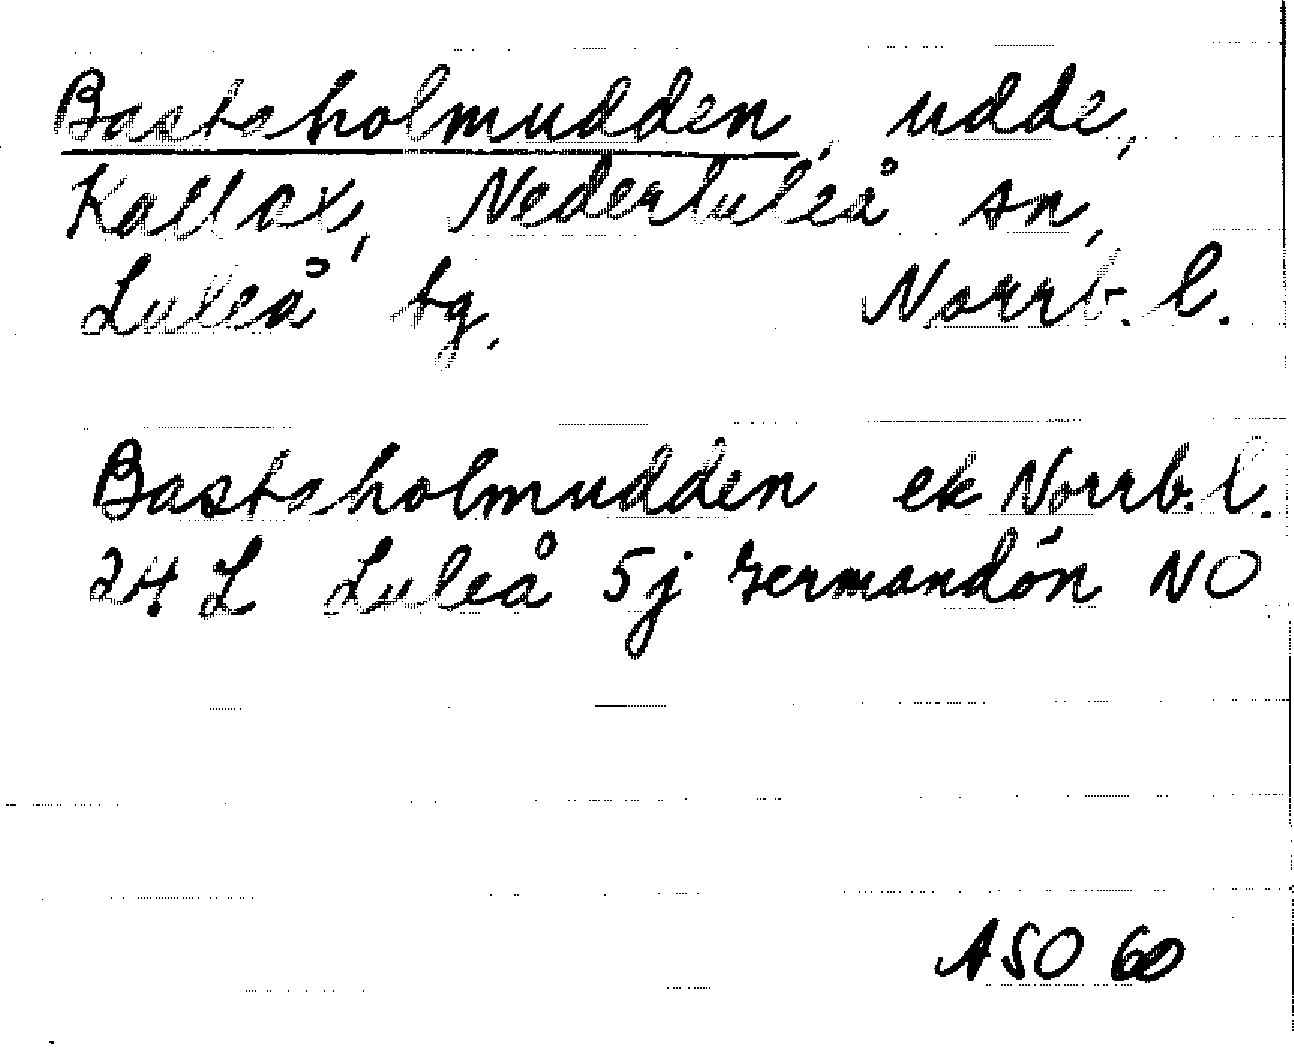 Bastaholmudden, udde,
Kallax, Nederluleå sn,
Luleå tg, Norrb. l.
Bastaholmudden ek Norrb. l.
24 L Luleå 5j Germandön NO
ASO 60